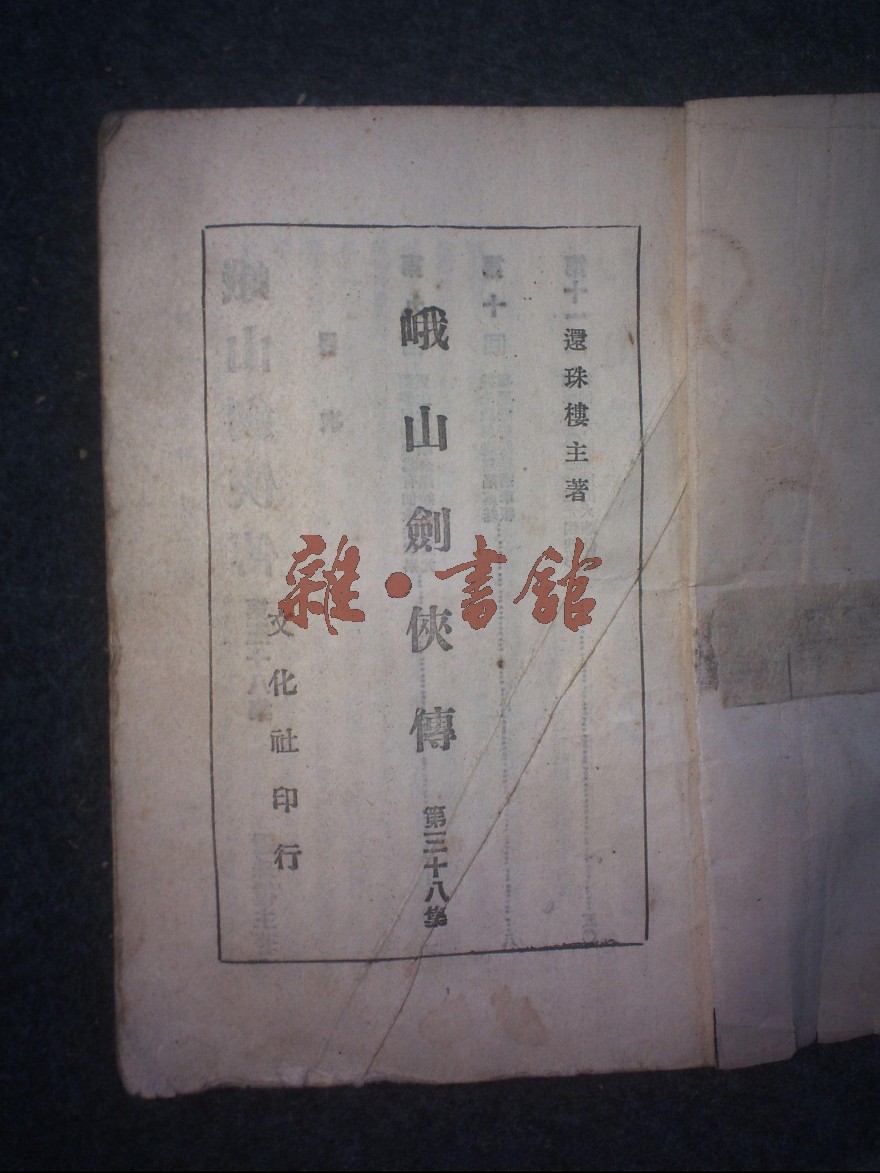 還珠樓主著
峨山劍俠傳
第三十八集
文化社印行
雜·書館